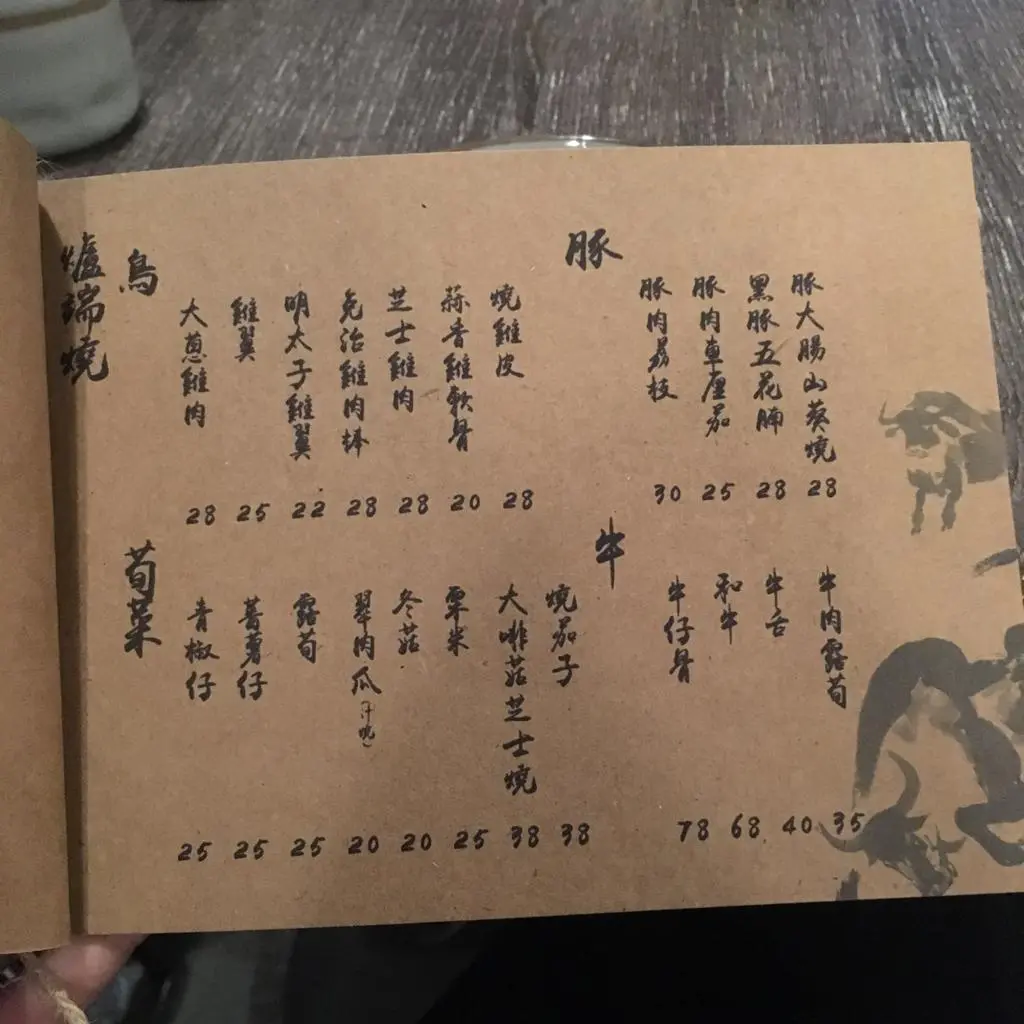 爐端燒
鳥
大蔥雞肉 28
雞翼 25
明太子雞翼 22
免治雞肉棒 28
芝士雞肉 28
蒜香雞軟骨 20
燒雞皮 28
豚
豚肉荔枝 30
豚肉車厘茄 25
黑豚五花腩 28
豚大腸山葵燒 28
荀菜
青椒仔 25
薯仔 25
露荀 25
翠肉瓜 20
冬菇 20
粟米 25
大啡菇芝士燒 38
燒茄子 38
牛
牛仔骨 78
和牛 68
牛舌 40
牛肉露荀 35